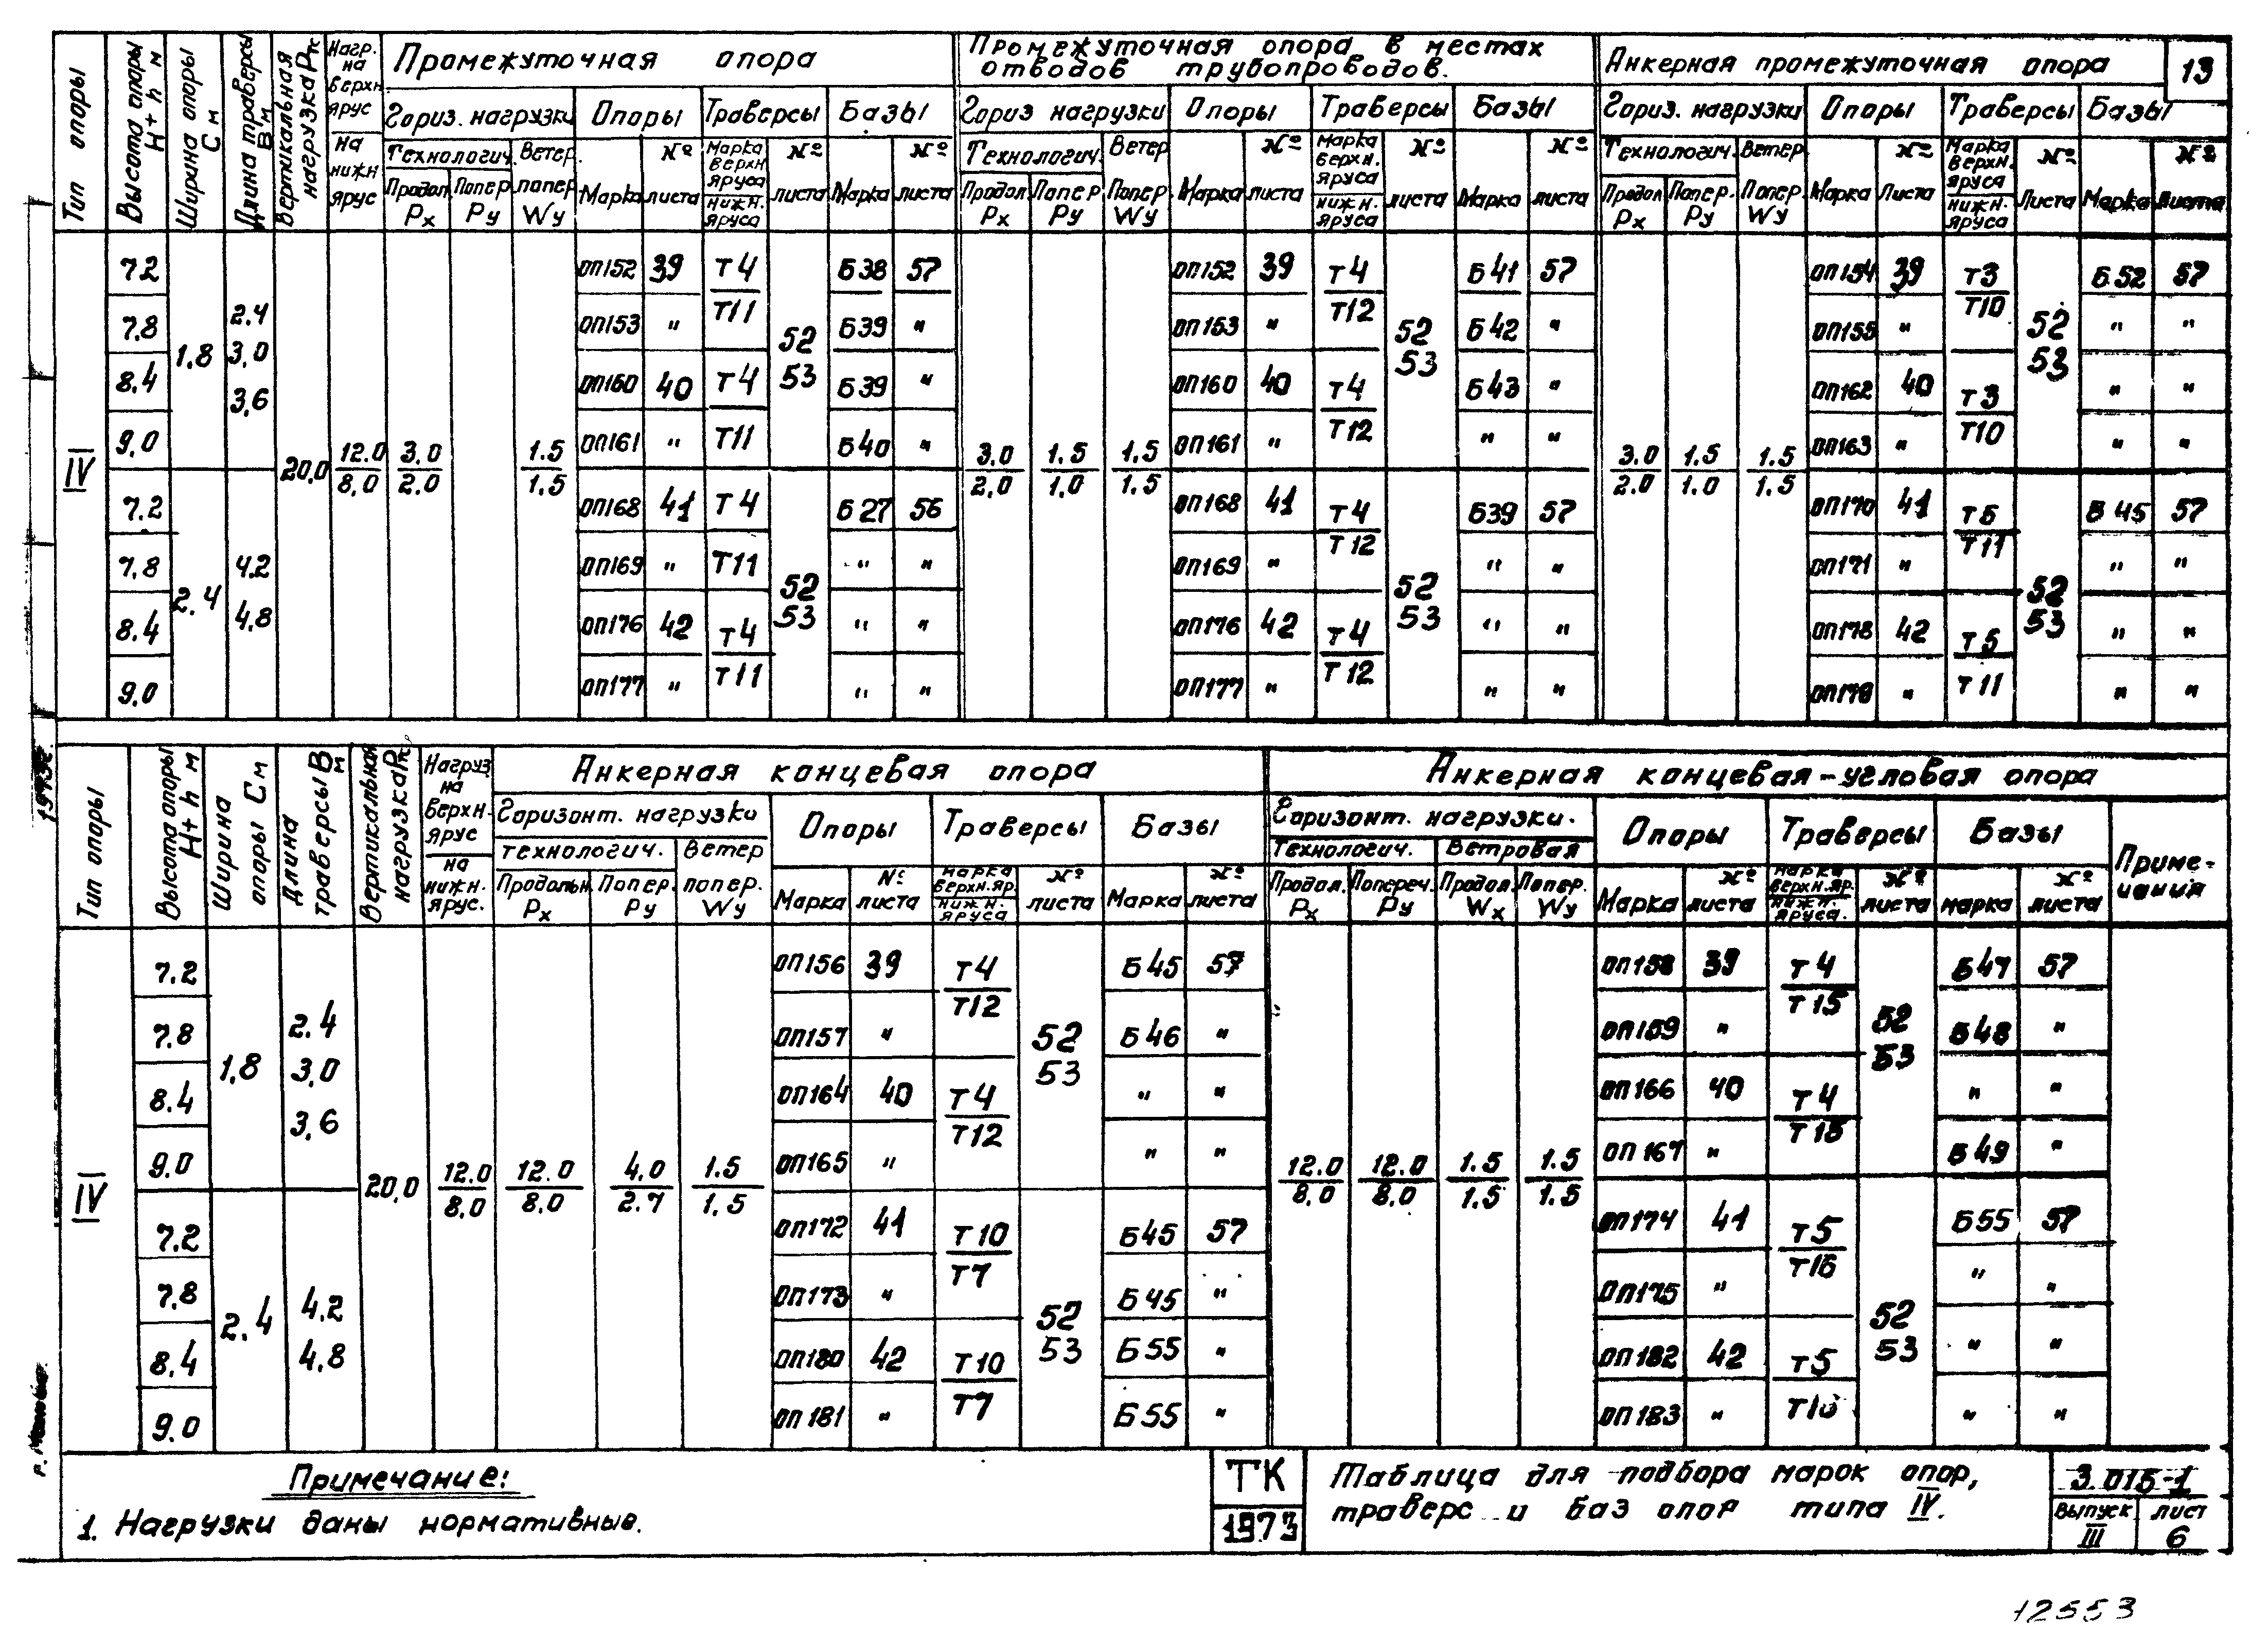 13
Тип опоры
Высота опоры H+h м
Ширина опоры С м
Длина траверсы В м
Вертикальная нагрузка Рк
Нагр. на верхн ярус
на нижн ярус
Промежуточная опора
Промежуточная опора в местах отводов трубопроводов.
Анкерная промежуточная опора
Гориз. нагрузки Опоры Траверсы Базы Гориз нагрузки Опоры Траверсы Базы Гориз. нагрузки Опоры Траверсы Базы
Технологич. Ветер. Технологич. Ветер Технологич. Ветер
Продол Рх Попер Ру попер Wy Марка № листа Марка верхн яруса нижн. яруса № листа Марка № листа
Продол Рх Попер Ру Попер Wy Марка № листа Марка верхн. яруса нижн. яруса № листа Марка № листа
Продол Рх Попер. Ру Попер Wy Марка № листа Марка верхн. яруса нижн. яруса № листа Марка № листа
IV 20,0 12.0 8,0 3.0 2.0 1.5 1.5 3.0 2,0 1.5 1.0 1.5 1.5 3.0 2.0 1.5 1.0 1.5 1.5
1.8 2.4 3,0 3,6
2.4 4.2 4.8
7.2 ОП152 39 Т4 Т11 52 53 Б38 57 ОП152 39 Т4 Т12 52 53 Б41 57 ОП154 39 Т3 Т10 52 53 Б52 57
7.8 ОП153 " Б39 " ОП153 " Б42 " ОП155 " " "
8.4 ОП160 40 Т4 Т11 Б39 " ОП160 40 Т4 Т12 Б43 " ОП162 40 Т3 Т10 " "
9.0 ОП161 " Б40 " ОП161 " " " ОП163 " " "
7.2 ОП168 41 Т4 Т11 52 53 Б27 56 ОП168 41 Т4 Т12 52 53 Б39 57 ОП170 41 Т5 Т11 52 53 Б45 57
7.8 ОП169 " " " ОП169 " " " ОП171 " " "
8.4 ОП176 42 Т4 Т11 " " ОП176 42 Т4 Т12 " " ОП178 42 Т5 Т11 " "
9.0 ОП177 " " " ОП177 " " " ОП179 " " "
Тип опоры
Высота опоры H+h м
Ширина опоры С м
Длина траверсы В м
Вертикальная нагрузка Рк
Нагруз на верхн. ярус
на нижн. ярус.
Анкерная концевая опора
Анкерная концевая-угловая опора
Горизонт. нагрузки Опоры Траверсы Базы Горизонт. нагрузки. Опоры Траверсы Базы Примечания
технологич. Ветер Технологич. Ветровая
Продольн. Рх Попер. Ру попер. Wy Марка № листа марка верхн.яр. нижн. яруса № листа Марка № листа
Продол. Рх Попереч. Ру Продол. Wx Попер. Wy Марка № листа марка верхн.яр. нижн. яруса. № листа марка № листа
IV 20,0 12.0 8.0 12.0 8.0 4.0 2.7 1.5 1.5 12.0 8.0 12.0 8.0 1.5 1.5 1.5 1.5
1,8 2.4 3,0 3,6
2.4 4.2 4.8
7.2 ОП156 39 Т4 Т12 52 53 Б45 57 ОП158 39 Т4 Т15 52 53 Б47 57
7.8 ОП157 " Б46 " ОП159 " Б48 "
8.4 ОП164 40 Т4 Т12 " " ОП166 40 Т4 Т15 " "
9.0 ОП165 " " " ОП167 " Б49 "
7.2 ОП172 41 Т10 Т7 52 53 Б45 57 ОП174 41 Т5 Т16 52 53 Б55 57
7.8 ОП173 " Б45 " ОП175 " " "
8,4 ОП180 42 Т10 Т7 Б55 " ОП182 42 Т5 " "
9.0 ОП181 " Б55 " ОП183 " " "
Примечание:
1. Нагрузки даны нормативные.
ТК
1973
Таблица для подбора марок опор,
траверс и баз опор типа IV.
3.015-1
Выпуск III
лист 6
12553